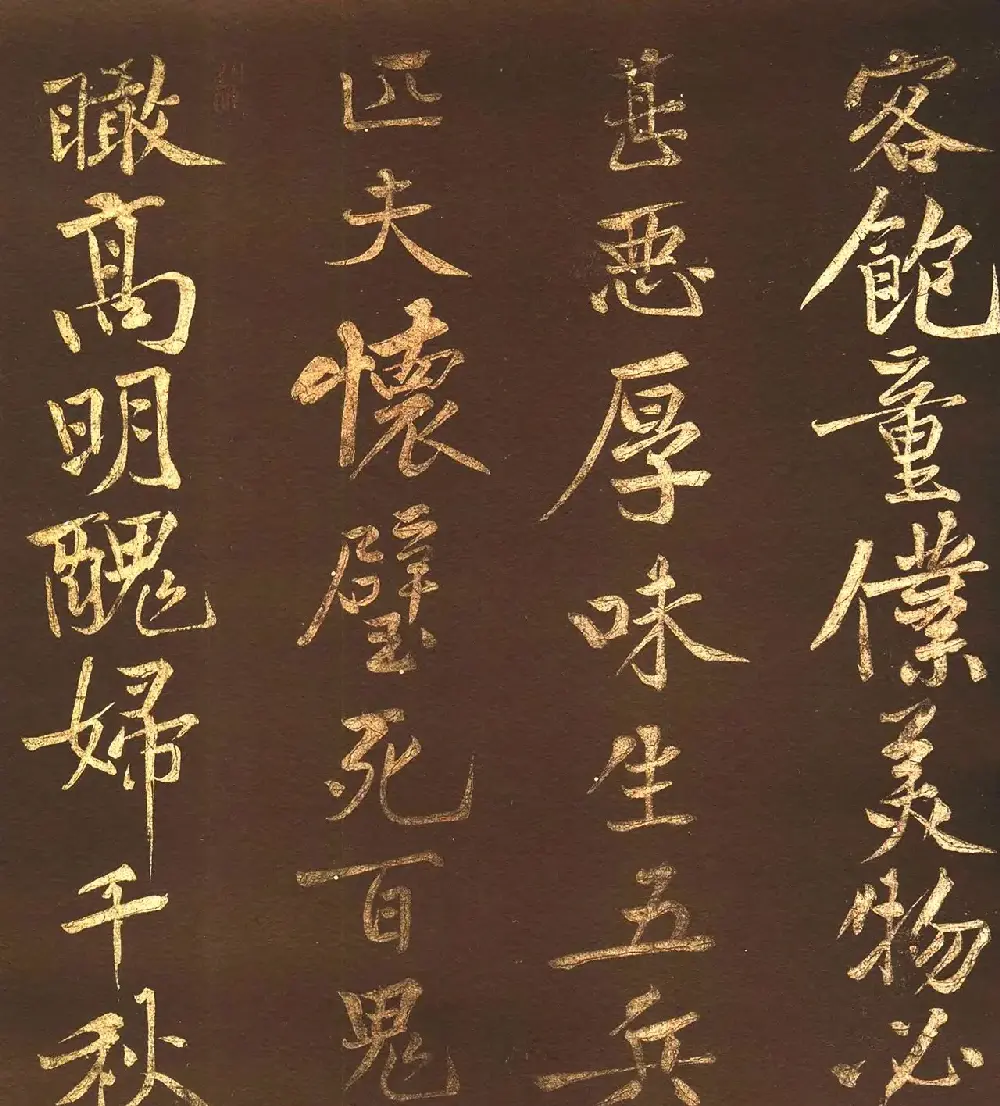 客飽童僕美物必
甚惡厚味生五兵
匹夫懷璧死百鬼
瞰高明醜婦千秋